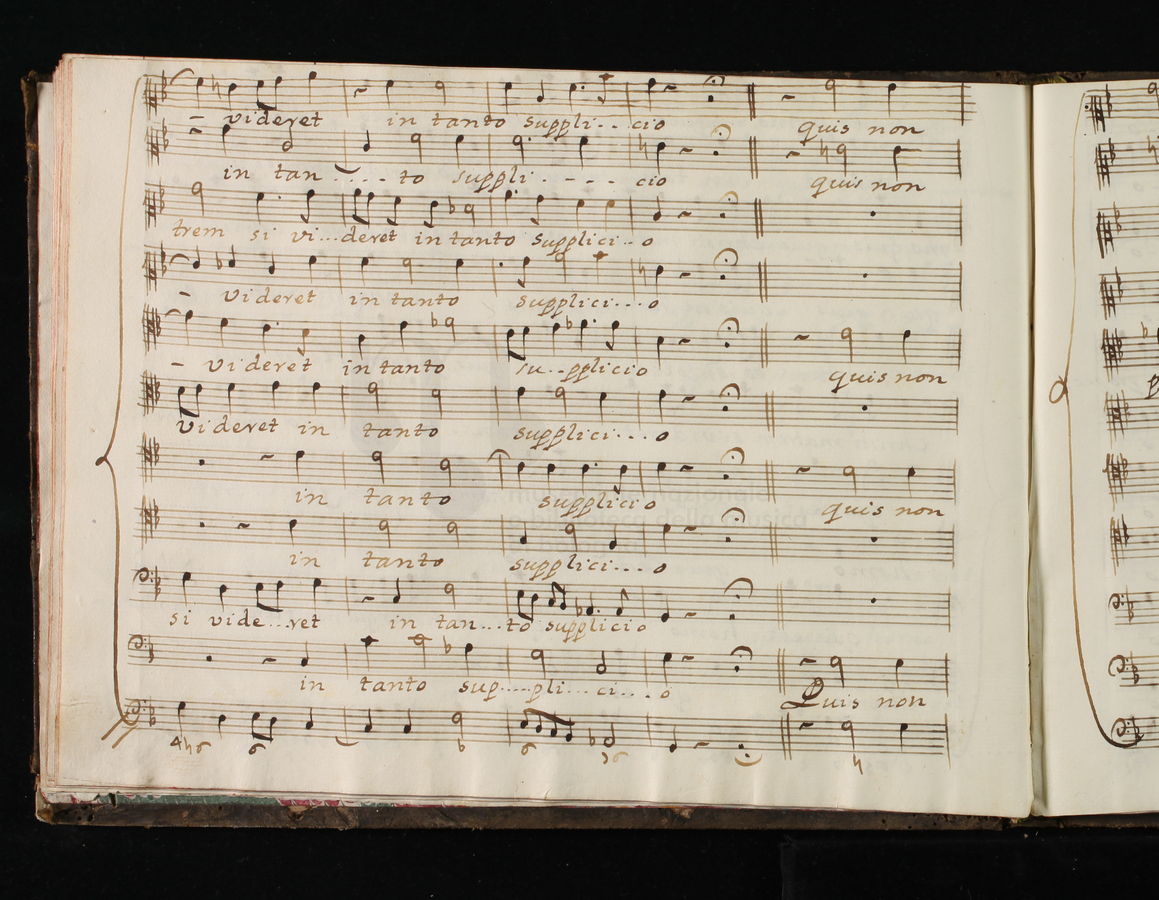 – videret in tanto suppli...cio quis non
in tan....to suppli.---cio quis non
trem si vi...deret in tanto supplici..o
– videret in tanto supplici...o
– videret in tanto su..pplicio quis non
videret in tanto supplici...o
in tanto supplicio quis non
in tanto supplici...o
si vide...ret in tan...to supplicio
in tanto sup.....pli...ci...o Quis non